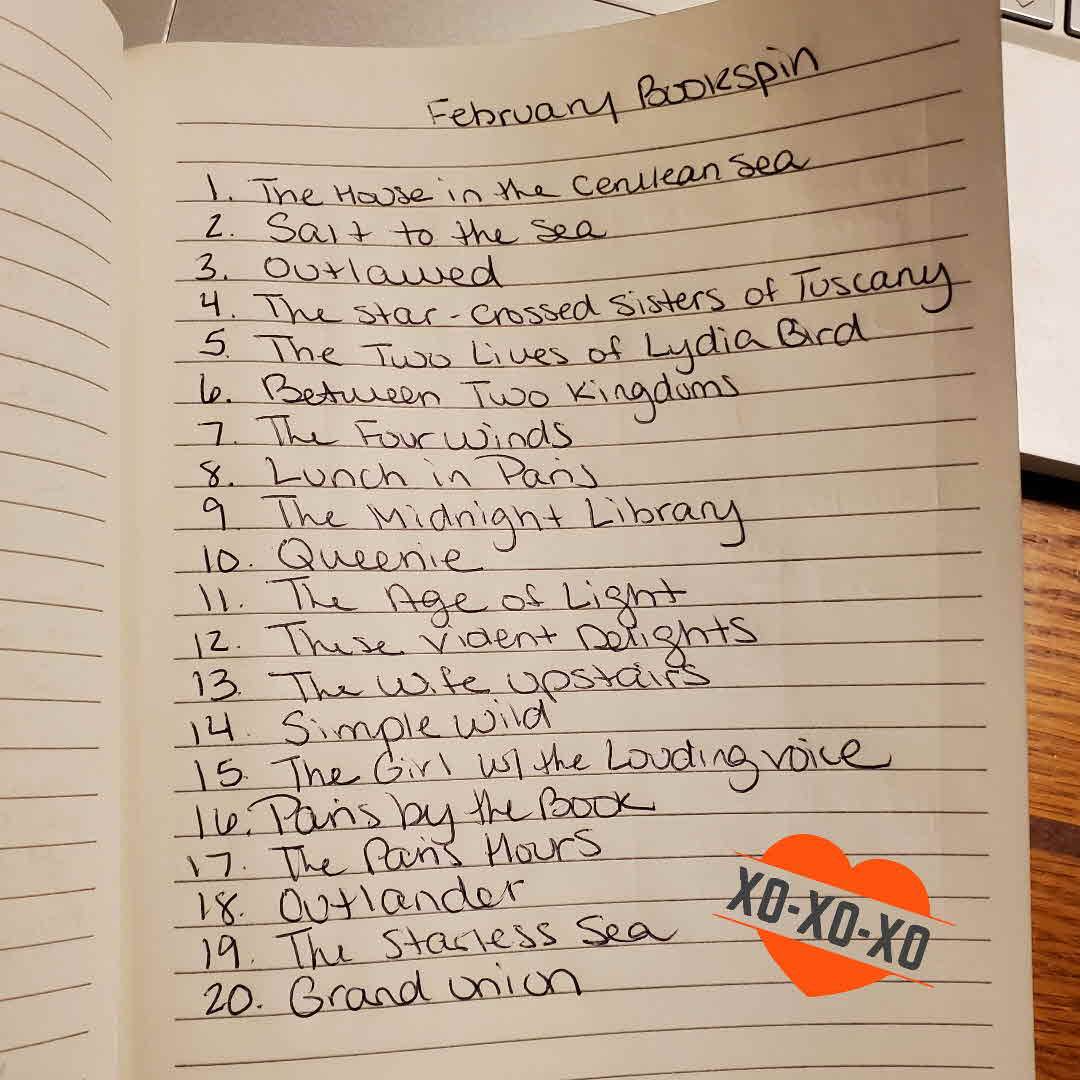 February Bookspin
1. The House in the Cerulean Sea
2. Salt to the Sea
3. Outlawed
4. The Star-Crossed Sisters of Tuscany
5. The Two Lives of Lydia Bird
6. Between Two Kingdoms
7. The Four Winds
8. Lunch in Paris
9 The Midnight Library
10. Queenie
11. The Age of Light
12. These Violent Delights
13. The Wife Upstairs
14. Simple Wild
15. The Girl w/ the Louding voice
16. Paris by the Book
17. The Paris Hours
18. Outlander
19. The Starless Sea
20. Grand Union
XO-XO-XO